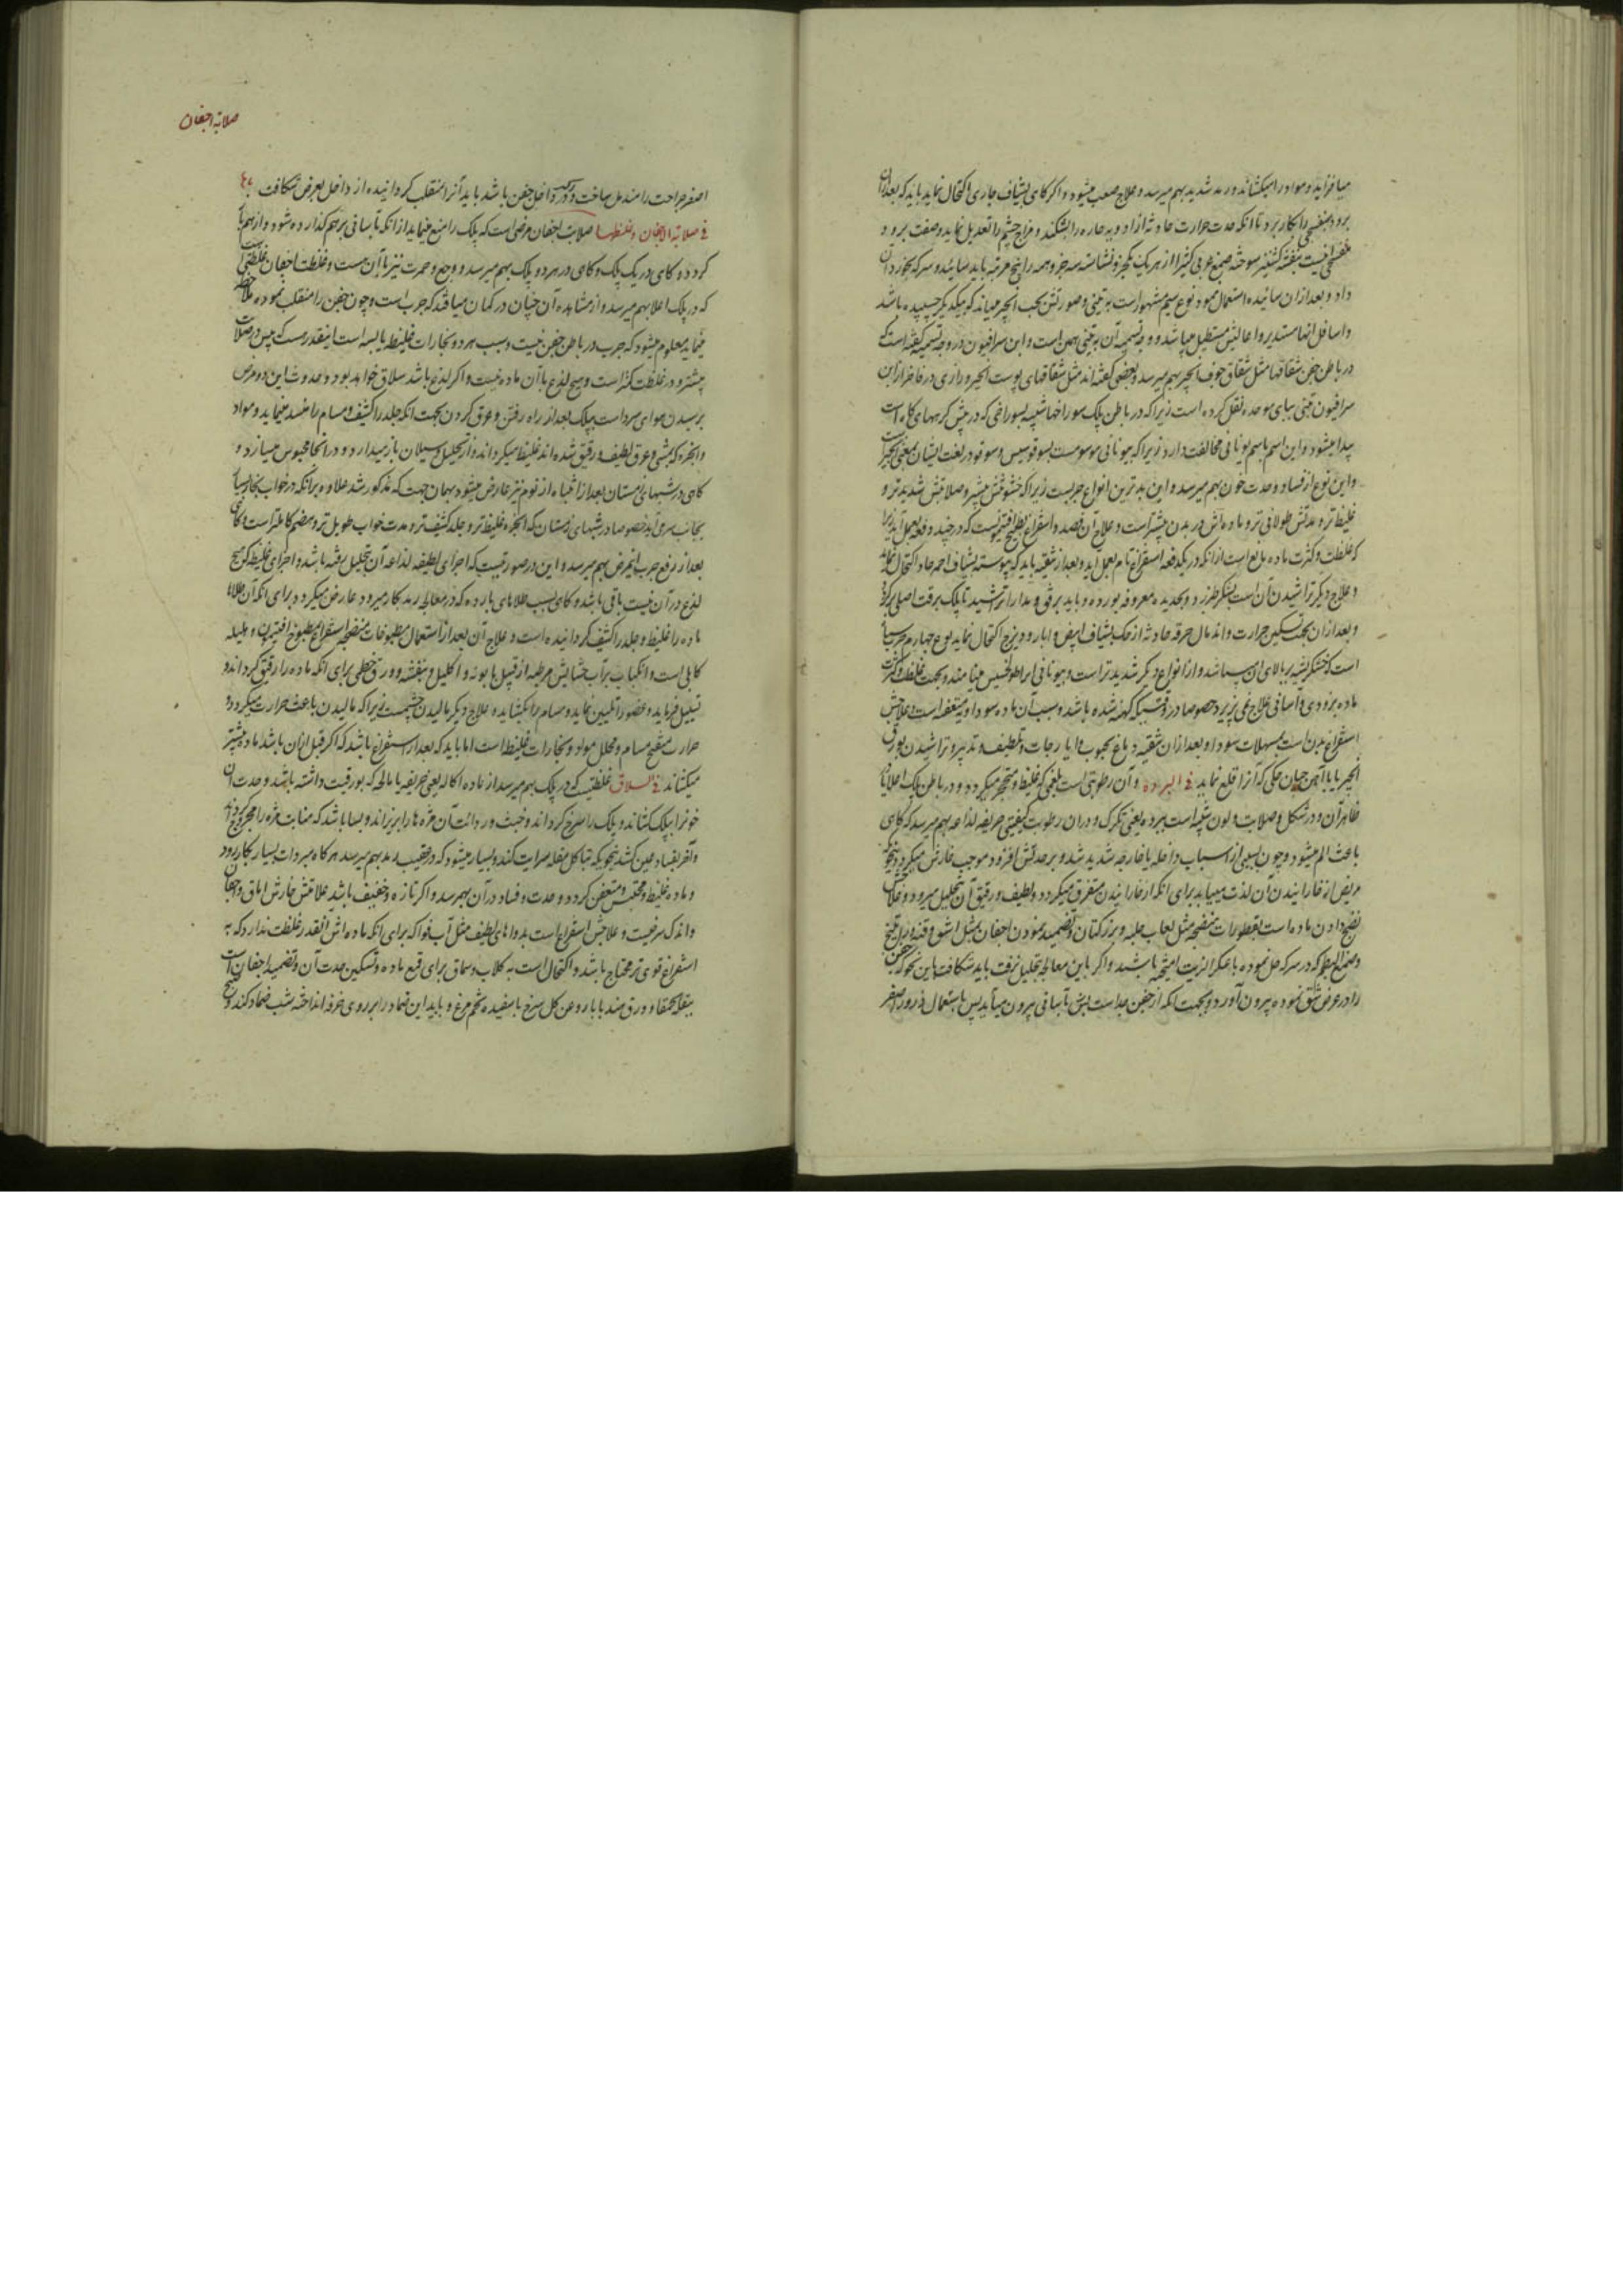 میافزاید و مواد را میکشاند و رمد شدید بهم میرسد و علاج صعب میشود و اگر گاهی بشیاف حاری اکتحال نماید باید که بعد از آن
برود بنفسجی را بکار برد تا آنکه حدت حرارت حادثه از ادویه حاره را بشکند و مزاج چشم را تعدیل نماید و صفت برود
بنفسجی اینست بنفشه کشنیز سوخته صمغ عربی کثیرا از هر یک یکجزو نشاسته سه جزو همه را پنج مرتبه باید سائید و سرکه بخورد آن
داد و بعد از آن سائیده استعمال نمود نوع سیم مشهور است به تینی و صورتش بحب انجیر میماند که بیکدیگر چسپیده باشد
و اسافل آنها مستدیر و اعالیش مستطیل میباشد و وجه تسمیه آن به تینی همین است و ابن سرافیون در وجه تسمیه گفته است که
در باطن جفن شقاقها مثل شقاق جوف انجیر بهم میرسد و بعضی گفته اند مثل شقاقهای پوست انجیر و رازی در فاخر از ابن
سرافیون تبنی ببای موحده نقل کرده است زیرا که در باطن پلک سوراخها شبیه بسوراخی که در بیش گرههای کاه است
پیدا میشود و این اسم باسم یونانی مخالفت دارد زیرا که بیونانی موسومست بسوقوسیس و سوقو در لغت ایشان بمعنی انجیر است
و این نوع از فساد و حدت خون بهم میرسد و این بدترین انواع جربست زیرا که خشونتش بیشتر و صلابتش شدیدتر و
غلیظتر و مدتش طولانی تر و ماده اش در بدن بیشتر است و علاج آن فصد و استفراغ بطبیخ افتیمونست که در چند دفعه بعمل آید زیرا
که غلظت و کثرت ماده مانع است از آنکه در یکدفعه استفراغ تام بعمل آید و بعد از تنقیه باید که پیوسته بشیاف احمر حاد اکتحال نماید
و علاج دیگر تراشیدن آن است بشکر طبرزد و بحدیده معروفه بورده و باید برفق و مدارا تراشید تا پلک برقت اصلی برگردد
و بعد از آن بجهت تسکین حرارت و اندمال حرقه حادثه از حک بشیاف ابیض و ابار و ودیزج اکتحال نماید نوع چهارم جرب سیاه
است که خشکریشه بر بالای آن میباشد و از انواع دیگر شدیدتر است و بیونانی مینامند و بجهت غلظت و کثرت
ماده بزودی و آسانی علاج نمی پذیرد خصوصا در وقتیکه کهنه شده باشد و سبب آن ماده سوداویه متعفنه است و علاجش
استفراغ بدن است بمسهلات سودا و بعد از آن تنقیه دماغ بحبوب و ایارجات و تلطیف تدبیر و تراشیدن بورق
انجیر یا با آهن چنان حکی که آنرا قلع نماید فی البرده و آن رطوبتی است بلغمی که غلیظ و متحجر میگردد و در باطن پلک اعلا یا
ظاهر آن و در شکل و صلابت و لون شبیه است ببرده یعنی تگرگ و در آن رطوبت کیفیتی حریفه لذاعه بهم میرسد که گاهی
باعث الم میشود و چون بسببی از اسباب داخله یا خارجه شدید شد و بر حدتش افزود موجب خارش میگردد بنحویکه
مریض از خارانیدن آن لذت مییابد برای آنکه از خارانیدن متفرق میگردد و لطیف و رقیق آن بتحلیل میرود و علاج
نضج دادن ماده است بقطورات منضجه مثل لعاب حلبه و بزر کتان و تضمید نمودن اجفان بمثل اشق و قنه و زرنیخ
و صمغ البطم که در سرکه حل نموده با عکر الزیت آمیخته باشند و اگر باین معالجه بتحلیل نرفت باید شکافت باین نحو که جفن
را در عرض شق نموده بیرون آورد و بجهت آنکه از جفن جداست بآسانی بیرون میآید پس باستعمال ذرور اصفر
صلابة اجفان
اصفر جراحت را مندمل ساخت و اگر در داخل جفن باشد باید آنرا منقلب گردانیده از داخل بعرض شکافت
فی صلابة الاجفان و غلظها صلابت اجفان مرضی است که پلک را منع مینماید از آنکه بآسانی بر هم گذارده شود و از هم باز
گردد و گاهی در یک پلک و گاهی در هر دو پلک بهم میرسد و وجع و حمرت نیز با آن هست و غلظت اجفان غلظتی است
که در پلک اعلا بهم میرسد و از مشاهده آن چنان در گمان میافتد که جرب است و چون جفن را منقلب نموده ملاحظه
مینماید معلوم میشود که جرب در باطن جفن نیست و سبب هر دو بخارات غلیظه یابسه است اینقدر هست که یبس در صلابت
بیشتر و در غلظت کمتر است و هیچ لذع با آن ماده نیست و اگر لذع باشد سلاق خواهد بود و حدوث این دو مرض
برسیدن هوای سرد است بپلک بعد از راه رفتن و عرق کردن بجهت آنکه جلد را کثیف و مسام را منسد مینماید و مواد
و ابخره که بمشی و عرق لطیف و رقیق شده اند غلیظ میگرداند و از تحلیل و سیلان باز میدارد و در آنجا محبوس میسازد و
گاهی در شبهای زمستان بعد از انتباه از نوم نیز عارض میشود بهمان جهت که مذکور شد علاوه بر آنکه در خواب بخار بسیار
بجانب سر می آید خصوصا در شبهای زمستان که ابخره غلیظتر و جلد کثیف تر و مدت خواب طویل تر و هضم کاملتر است و گاهی
بعد از رفع جرب این مرض بهم میرسد و این در صورتیست که اجزای لطیفه لذاعه آن بتحلیل رفته باشد و اجزای غلیظه که هیچ
لذع در آن نیست باقی باشد و گاهی بسبب طلاهای بارده که در معالجه رمد بکار میرود عارض میگردد برای آنکه آن طلاها
ماده را غلیظ و جلد را کثیف گردانیده است و علاج آن بعد از استعمال مطبوخات منضجه استفراغ بمطبوخ افتیمون و هلیله
کابلی است و انکباب بر آب حشایش مرطبه از قبیل بابونه و اکلیل و بنفشه و ورق خطمی برای آنکه ماده را رقیق گرداند و
تحلیل فرماید و عضو را تلیین نماید و مسام را بگشاید و علاج دیگر مالیدن چشمست زیرا که مالیدن باعث حرارت میگردد و
حرارت مفتح مسام و محلل مواد و بخارات غلیظه است اما باید که بعد از استفراغ باشد که اگر قبل از آن باشد ماده بیشتر
میکشاند فی السلاق غلظتیست که در پلک بهم میرسد از ماده اکاله یعنی حریفه یا مالحه که بورقیت داشته باشد و حدت آن
خونرا بپلک کشاند و پلک را سرخ گرداند و خبث و ردائت آن مژه ها را بریزاند و بسا باشد که منابت مژه را مجروح گرداند
و آخر بفساد عین کشد بنحویکه بتاکل مقله سرایت کند و بسیار میشود که در عقیب رمد بهم میرسد هرگاه مبردات بسیار بکار رود
و ماده غلیظ و محتبس و متعفن گردد و حدت و فساد در آن بهمرسد و اگر تازه و خفیف باشد علاماتش خارش اماق و اجفان
و اندک سرخیست و علاجش استفراغ است بدواهای لطیف مثل آب فواکه برای آنکه ماده اش آنقدر غلظت ندارد که به
استفراغ قوی تر محتاج باشد و اکتحال است به گلاب و سماق برای قمع ماده و تسکین حدت آن و تضمید اجفان است
ببقلة الحمقا و ورق هندبا با روغن گل سرخ با سفیده تخم مرغ و باید این ضماد را بر روی خرقه انداخته شب ضماد کنند و صبح